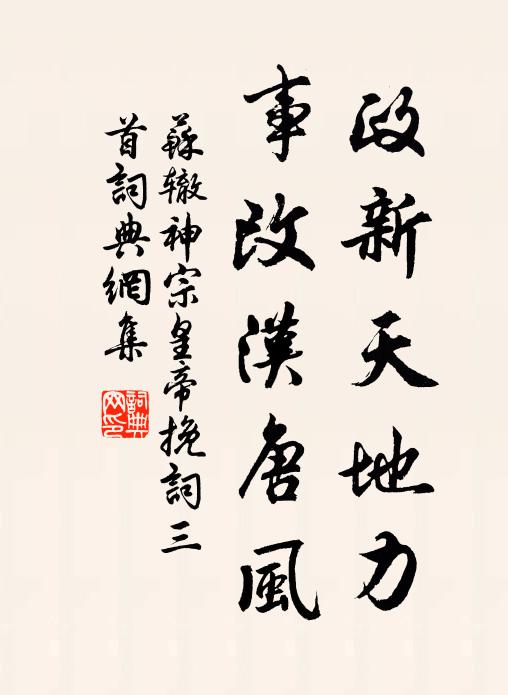 政新天地力
事改漢唐風
蘇轍神宗皇帝挽詞三
首詞典網集
詞典
网印